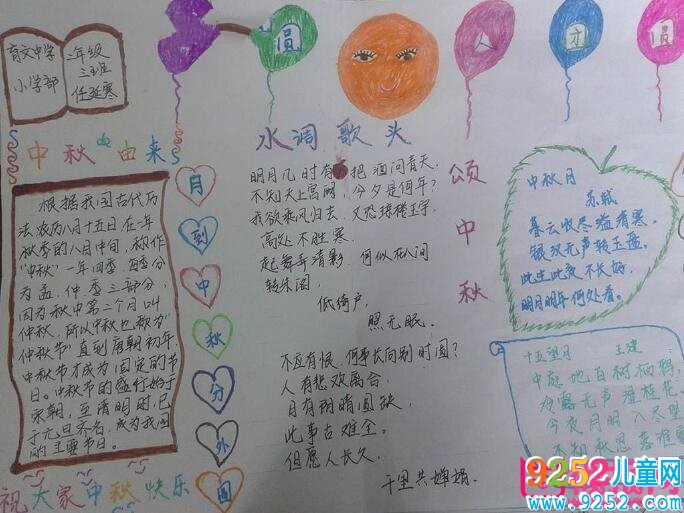 育文中学
小学部
二年级
三班
任延寒
员
人
才
员
中秋由来
根据我国古代历
法农历八月十五日在一年
秋季的八月中旬,称作
"中秋"一年四季.四季分
为孟.仲.季三部分,
因为秋中第二个月叫
仲秋,所以中秋也称为
"仲秋节"直到唐朝初年,
中秋节才成为固定的节
日。中秋节的盛行始于
宋朝,至清明时,已
于元旦齐名,成为我国
的主要节日。
祝大家中秋快乐
月到中秋分外圆
水调歌头
明月几时有 把酒问青天.
不知天上宫阙,今夕是何年?
我欲乘风归去.又恐琼楼玉宇.
高处不胜寒.
起舞弄清影 何似在人间
转朱阁,
低绮户,
照无眠.
不应有恨,何事长向别时圆?
人有悲欢离合,
月有阴晴圆缺,
此事古难全.
但愿人长久.
千里共婵娟.
颂中秋
中秋月
苏轼
暮云收尽溢清寒.
银汉无声转玉盘.
此生此夜不长好,
明月明年何处看。
十五望月 王建
中庭地白树栖鸦,
冷露无声湿桂花.
今夜月明人尽望
不知秋思落谁
9252儿童网
www.9252.com